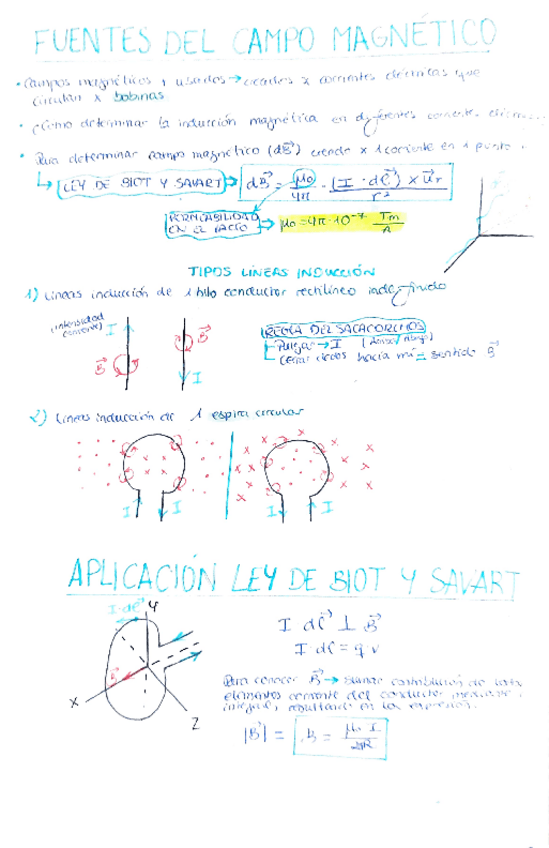 FUENTES DEL CAMPO MAGNÉTICO
• Campos magnéticos + usados → creados x corrientes eléctricas que
circulan x bobinas
• ¿Cómo determinar la inducción magnética en diferentes corrientes
• Para determinar campo magnético (dB⃗) creado x 1 corriente en 1 punto
LEY DE BIOT Y SAVART → dB⃗ = μ₀/4π · (I · dℓ⃗) × u⃗r / r²
PERMEABILIDAD
EN EL VACÍO → μ₀ = 4π · 10⁻⁷ Tm/A
TIPOS LÍNEAS INDUCCIÓN
1) Líneas inducción de 1 hilo conductor rectilíneo indefinido
(intensidad
corriente) I
B⃗
B⃗
I
REGLA DEL SACACORCHOS
Pulgar → I
Cerrar dedos hacia mí = sentido B⃗
2) Líneas inducción de 1 espira circular
I I I I
APLICACIÓN LEY DE BIOT Y SAVART
I · dℓ⃗ Y
B⃗
X
Z
I dℓ⃗ ⊥ B⃗
I dℓ = q v
Para conocer B⃗ → sumar contribución de
elementos corriente del conductor mediante
integral, resultando en la expresión:
|B⃗| = B = μ₀ I / 2R